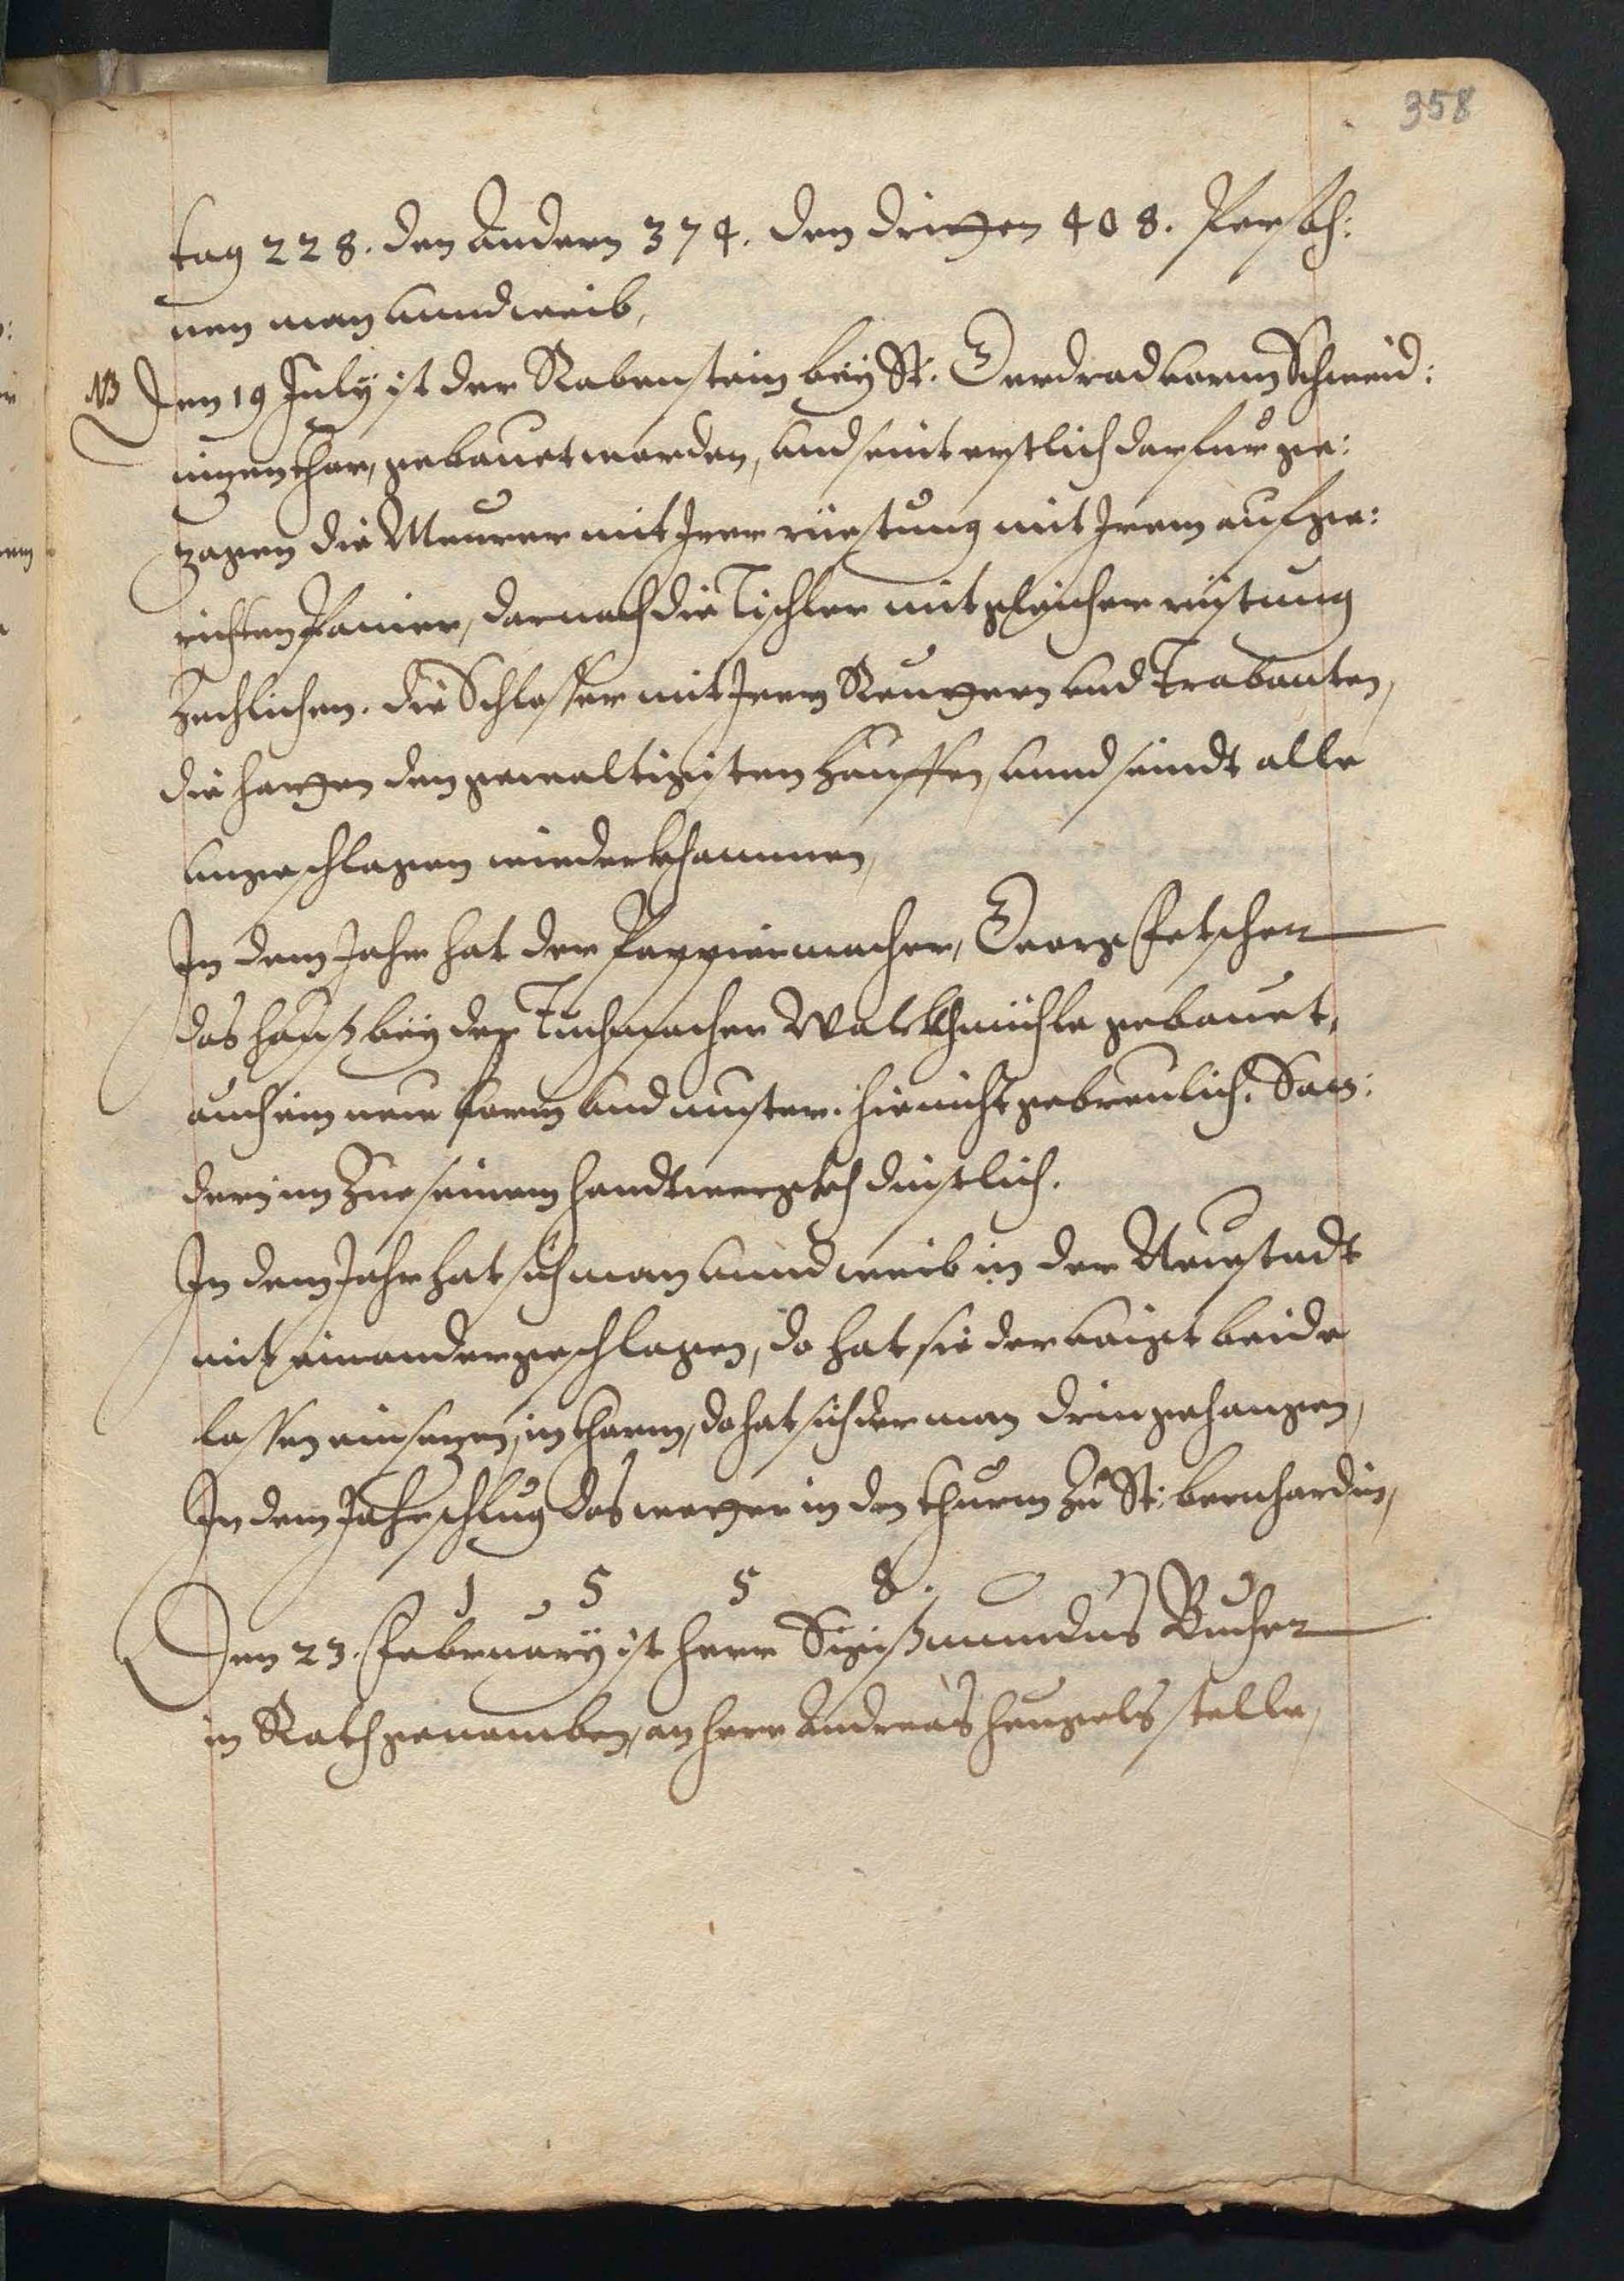 358
tag 228. den Andern 374. den dritten 408. Persoh:
nen man unnd weib,
NB Den 19 July ist der Rabenstein beÿ St. Gerdrad vorm Schweid:
nizen thor, gebauet worden, und seint erstlich darfur ge:
zogen die Meurer mit Irer rüstung mit Irem aufge:
richten Panier, darnach die Tischler mit gleicher rüstung
Zechlichen. die Schlosser mit Iren Reuttern und Trabanten,
die hatten den gewaltigisten hauffen, unnd seindt alle
ungeschlagen wiederkhommen,
In dem Jahr hat der Pappiermacher, Georg Fetscher
das hauß beÿ der Tuchmacher Walckhmühle gebauet,
auch ein neue form und muster. hie nicht gebreulich. Son:
dern im Zue seinem handtwergkh dinstlich.
In dem Jahr hat sich man unnd weib in der Neustadt
mit einander geschlagen, do hat sie der voigt beide
lassen einsetzen, in thorm, do hat sich der man drin gehangen,
In dem Jahr schlug das wetter in den thurm Zu St: bernhardin,
1 5 5 8.
Den 23. February ist herr Sigißmundus Bucher
in Rath genomben, an herr Andreas heugels stelle,